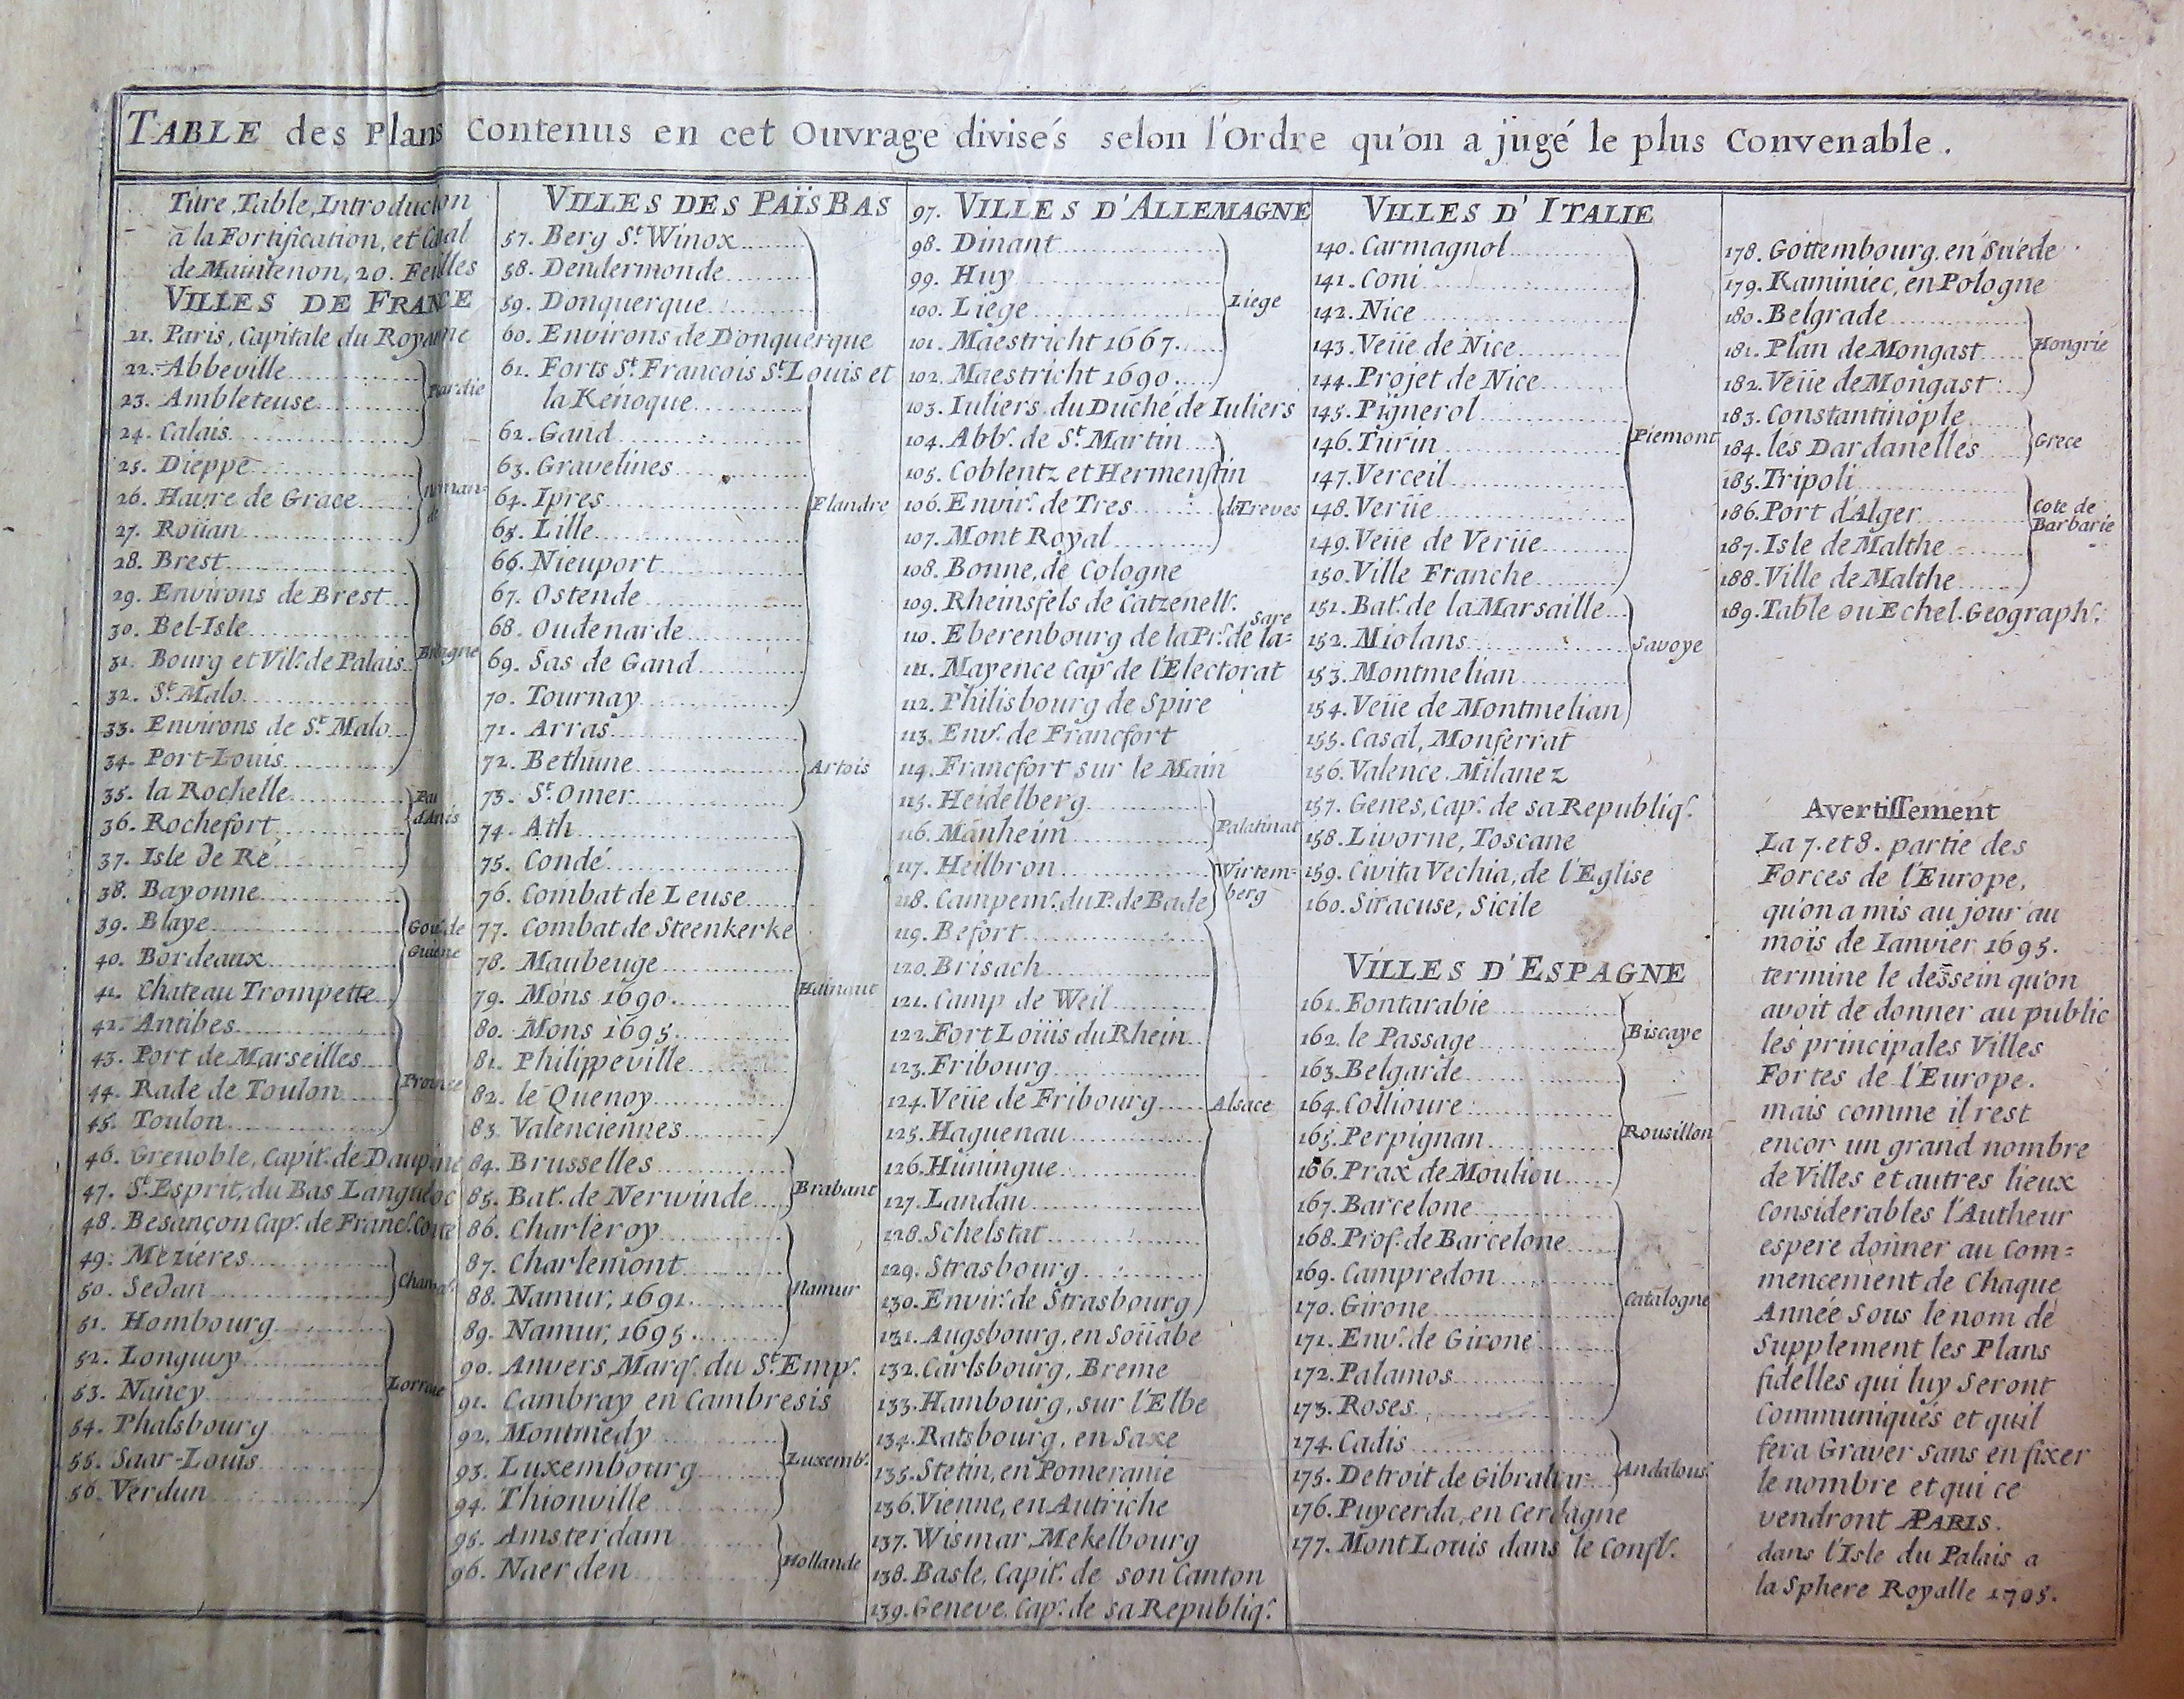 TABLE des Plans Contenus en cet Ouvrage divisés selon l'Ordre qu'on a jugé le plus Convenable.
Titre, Table, Introduction
a la Fortification, et Canal
de Maintenon, 20. Feuilles
VILLES DE FRANCE
21. Paris, Capitale du Royaume
22. Abbeville
23. Ambleteuse
24. Calais
Picardie
25. Dieppe
26. Havre de Grace
27. Roüan
28. Brest
29. Environs de Brest
30. Bel-Isle
31. Bourg et Vil. de Palais
32. St. Malo
33. Environs de St. Malo
34. Port-Louis
Bretagne
35. la Rochelle
36. Rochefort
37. Isle de Ré
Païs d'Aunis
38. Bayonne
39. Blaye
40. Bordeaux
41. Chateau Trompette
Gou. de
Guiene
42. Antibes
43. Port de Marseilles
44. Rade de Toulon
45. Toulon
Provence
46. Grenoble, Capit. de Daupiné
47. St. Esprit, du Bas Languedoc
48. Besançon Cap. de Franc. Conté
49. Mezieres
50. Sedan
Champa.
51. Hombourg
52. Longuvy
53. Nancy
54. Phalsbourg
55. Saar-Louis
56. Verdun
Lorraine
VILLES DES PAÏS BAS
57. Berg St. Winox
58. Dendermonde
59. Donquerque
60. Environs de Donquerque
61. Forts St. Francois St. Louis et
la Kenoque
62. Gand
63. Gravelines
64. Ipres
65. Lille
66. Nieuport
67. Ostende
68. Oudenarde
69. Sas de Gand
70. Tournay
Flandre
71. Arras
72. Bethune
73. St. Omer
Artois
74. Ath
75. Condé
76. Combat de Leuse
77. Combat de Steenkerke
78. Maubeuge
79. Mons 1690.
80. Mons 1695.
81. Philippeville
82. le Quenoy
83. Valenciennes
Hainaut
84. Brusselles
85. Bat. de Nerwinde
Brabant
86. Charleroy
87. Charlemont
88. Namur, 1691.
89. Namur, 1695.
Namur
90. Anvers, Marq. du St. Emp.
91. Cambray en Cambresis
92. Montmedy
93. Luxembourg
94. Thionville
Luxemb.
95. Amsterdam
96. Naerden
Hollande
97. VILLES D'ALLEMAGNE
98. Dinant
99. Huy
100. Liege
101. Maestricht 1667.
102. Maestricht 1690.
Liege
103. Iuliers du Duché de Iuliers
104. Abb. de St. Martin
105. Coblentz et Hermenstin
106. Envir. de Tres
107. Mont Royal
de Treves
108. Bonne, de Cologne
109. Rheinsfels de Catzenell.
110. Eberenbourg de la Pr. de la=
Sare
111. Mayence Cap. de l'Electorat
112. Philisbourg de Spire
113. Env. de Francfort
114. Francfort sur le Main
115. Heidelberg
116. Manheim
Palatinat
117. Heilbron
118. Campem. du P. de Bade
Wirtem-
berg
119. Befort
120. Brisach
121. Camp de Weil
122. Fort Loüis du Rhein
123. Fribourg
124. Veüe de Fribourg
125. Haguenau
126. Huningue
127. Landau
128. Schelstat
129. Strasbourg
130. Envir. de Strasbourg
Alsace
131. Augsbourg, en Soüabe
132. Carlsbourg, Breme
133. Hambourg, sur l'Elbe
134. Ratsbourg, en Saxe
135. Stetin, en Pomeranie
136. Vienne, en Autriche
137. Wismar, Mekelbourg
138. Basle, Capit. de son Canton
139. Geneve, Cap. de sa Republiq.
VILLES D'ITALIE
140. Carmagnol
141. Coni
142. Nice
143. Veüe de Nice
144. Projet de Nice
145. Pignerol
146. Turin
147. Verceil
148. Verüe
149. Veüe de Verüe
150. Ville Franche
Piemont
151. Bat. de la Marsaille
152. Miolans
153. Montmelian
154. Veüe de Montmelian
Savoye
155. Casal, Monferrat
156. Valence, Milanez
157. Genes, Cap. de sa Republiq.
158. Livorne, Toscane
159. Civita Vechia, de l'Eglise
160. Siracuse, Sicile
VILLES D'ESPAGNE
161. Fontarabie
162. le Passage
Biscaye
163. Belgarde
164. Collioure
165. Perpignan
166. Prax de Mouliou
Rousillon
167. Barcelone
168. Prof. de Barcelone
169. Campredon
170. Girone
171. Env. de Girone
172. Palamos
173. Roses
Catalogne
174. Cadis
175. Detroit de Gibraltar
Andalous.
176. Puycerda, en Cerdagne
177. Mont Louis dans le Confl.
178. Gottembourg, en Suede
179. Kaminiec, en Pologne
180. Belgrade
181. Plan de Mongast
182. Veüe de Mongast
Hongrie
183. Constantinople
184. les Dardanelles
Grece
185. Tripoli
186. Port d'Alger
187. Isle de Malthe
188. Ville de Malthe
Cote de
Barbarie
189. Table ou Echel. Geograph.
Avertissement
La 7. et 8. partie des
Forces de l'Europe,
qu'on a mis au jour au
mois de Ianvier 1695.
termine le dessein qu'on
avoit de donner au public
les principales Villes
Fortes de l'Europe.
mais comme il rest
encor un grand nombre
de Villes et autres lieux
Considerables l'Autheur
espere donner au Com=
mencement de Chaque
Année Sous le nom de
Supplement les Plans
fidelles qui luy Seront
Communiqués et quil
fera Graver sans en fixer
le nombre et qui ce
vendront A PARIS.
dans l'Isle du Palais a
la Sphere Royalle 1705.